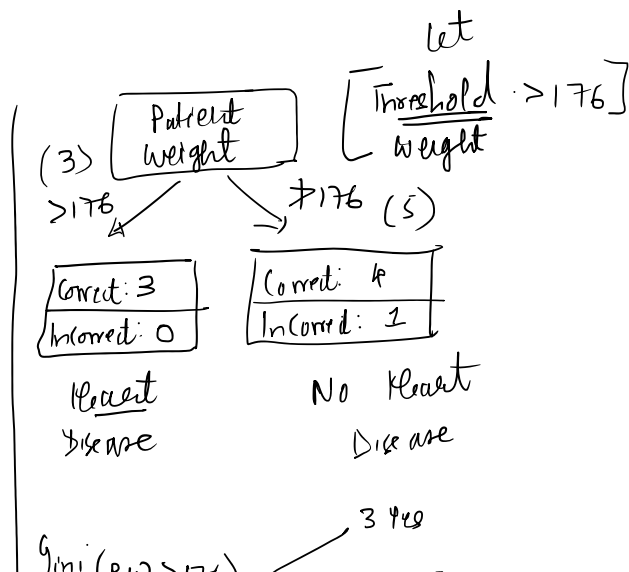 let
[Threshold > 176]
weight
Patient
weight
(3)
>176
≯176 (5)
Correct: 3
Incorrect: 0
Correct: 4
InCorrect: 1
Heart
Disease
No Heart
Disease
3 Yes
Gini (